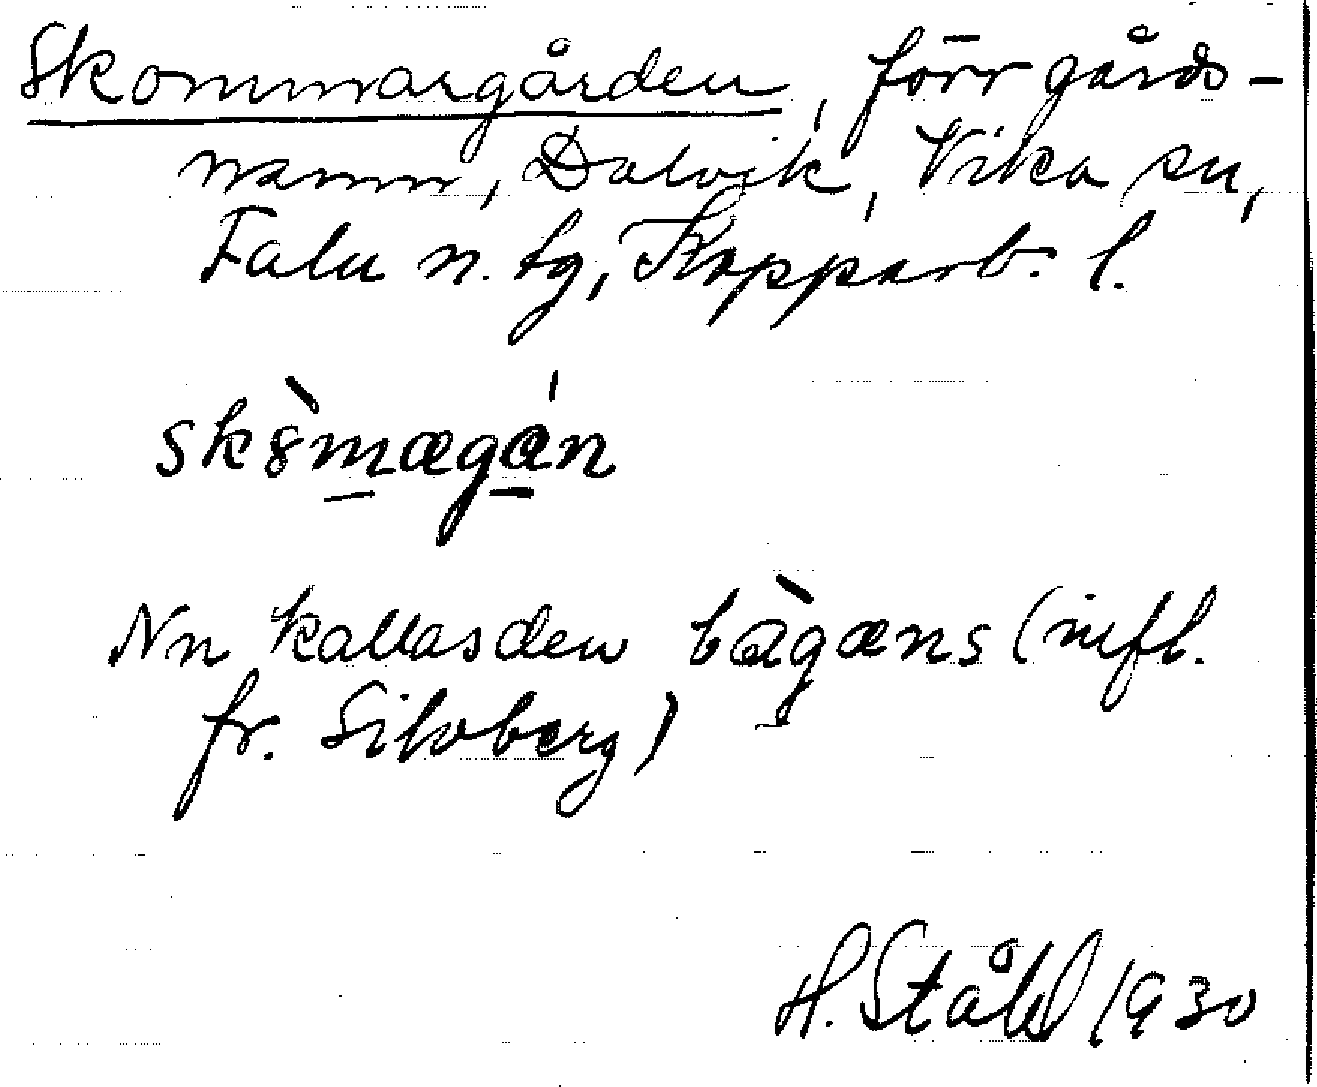 Skommargården, förr gårds-
namn, Dalvik, Vika sn,
Falu n. tg, Kopparb. l.
skò̀mægán
Nn kallas den bàgæns (infl.
fr. Silvberg)
H. Ståhl 1930